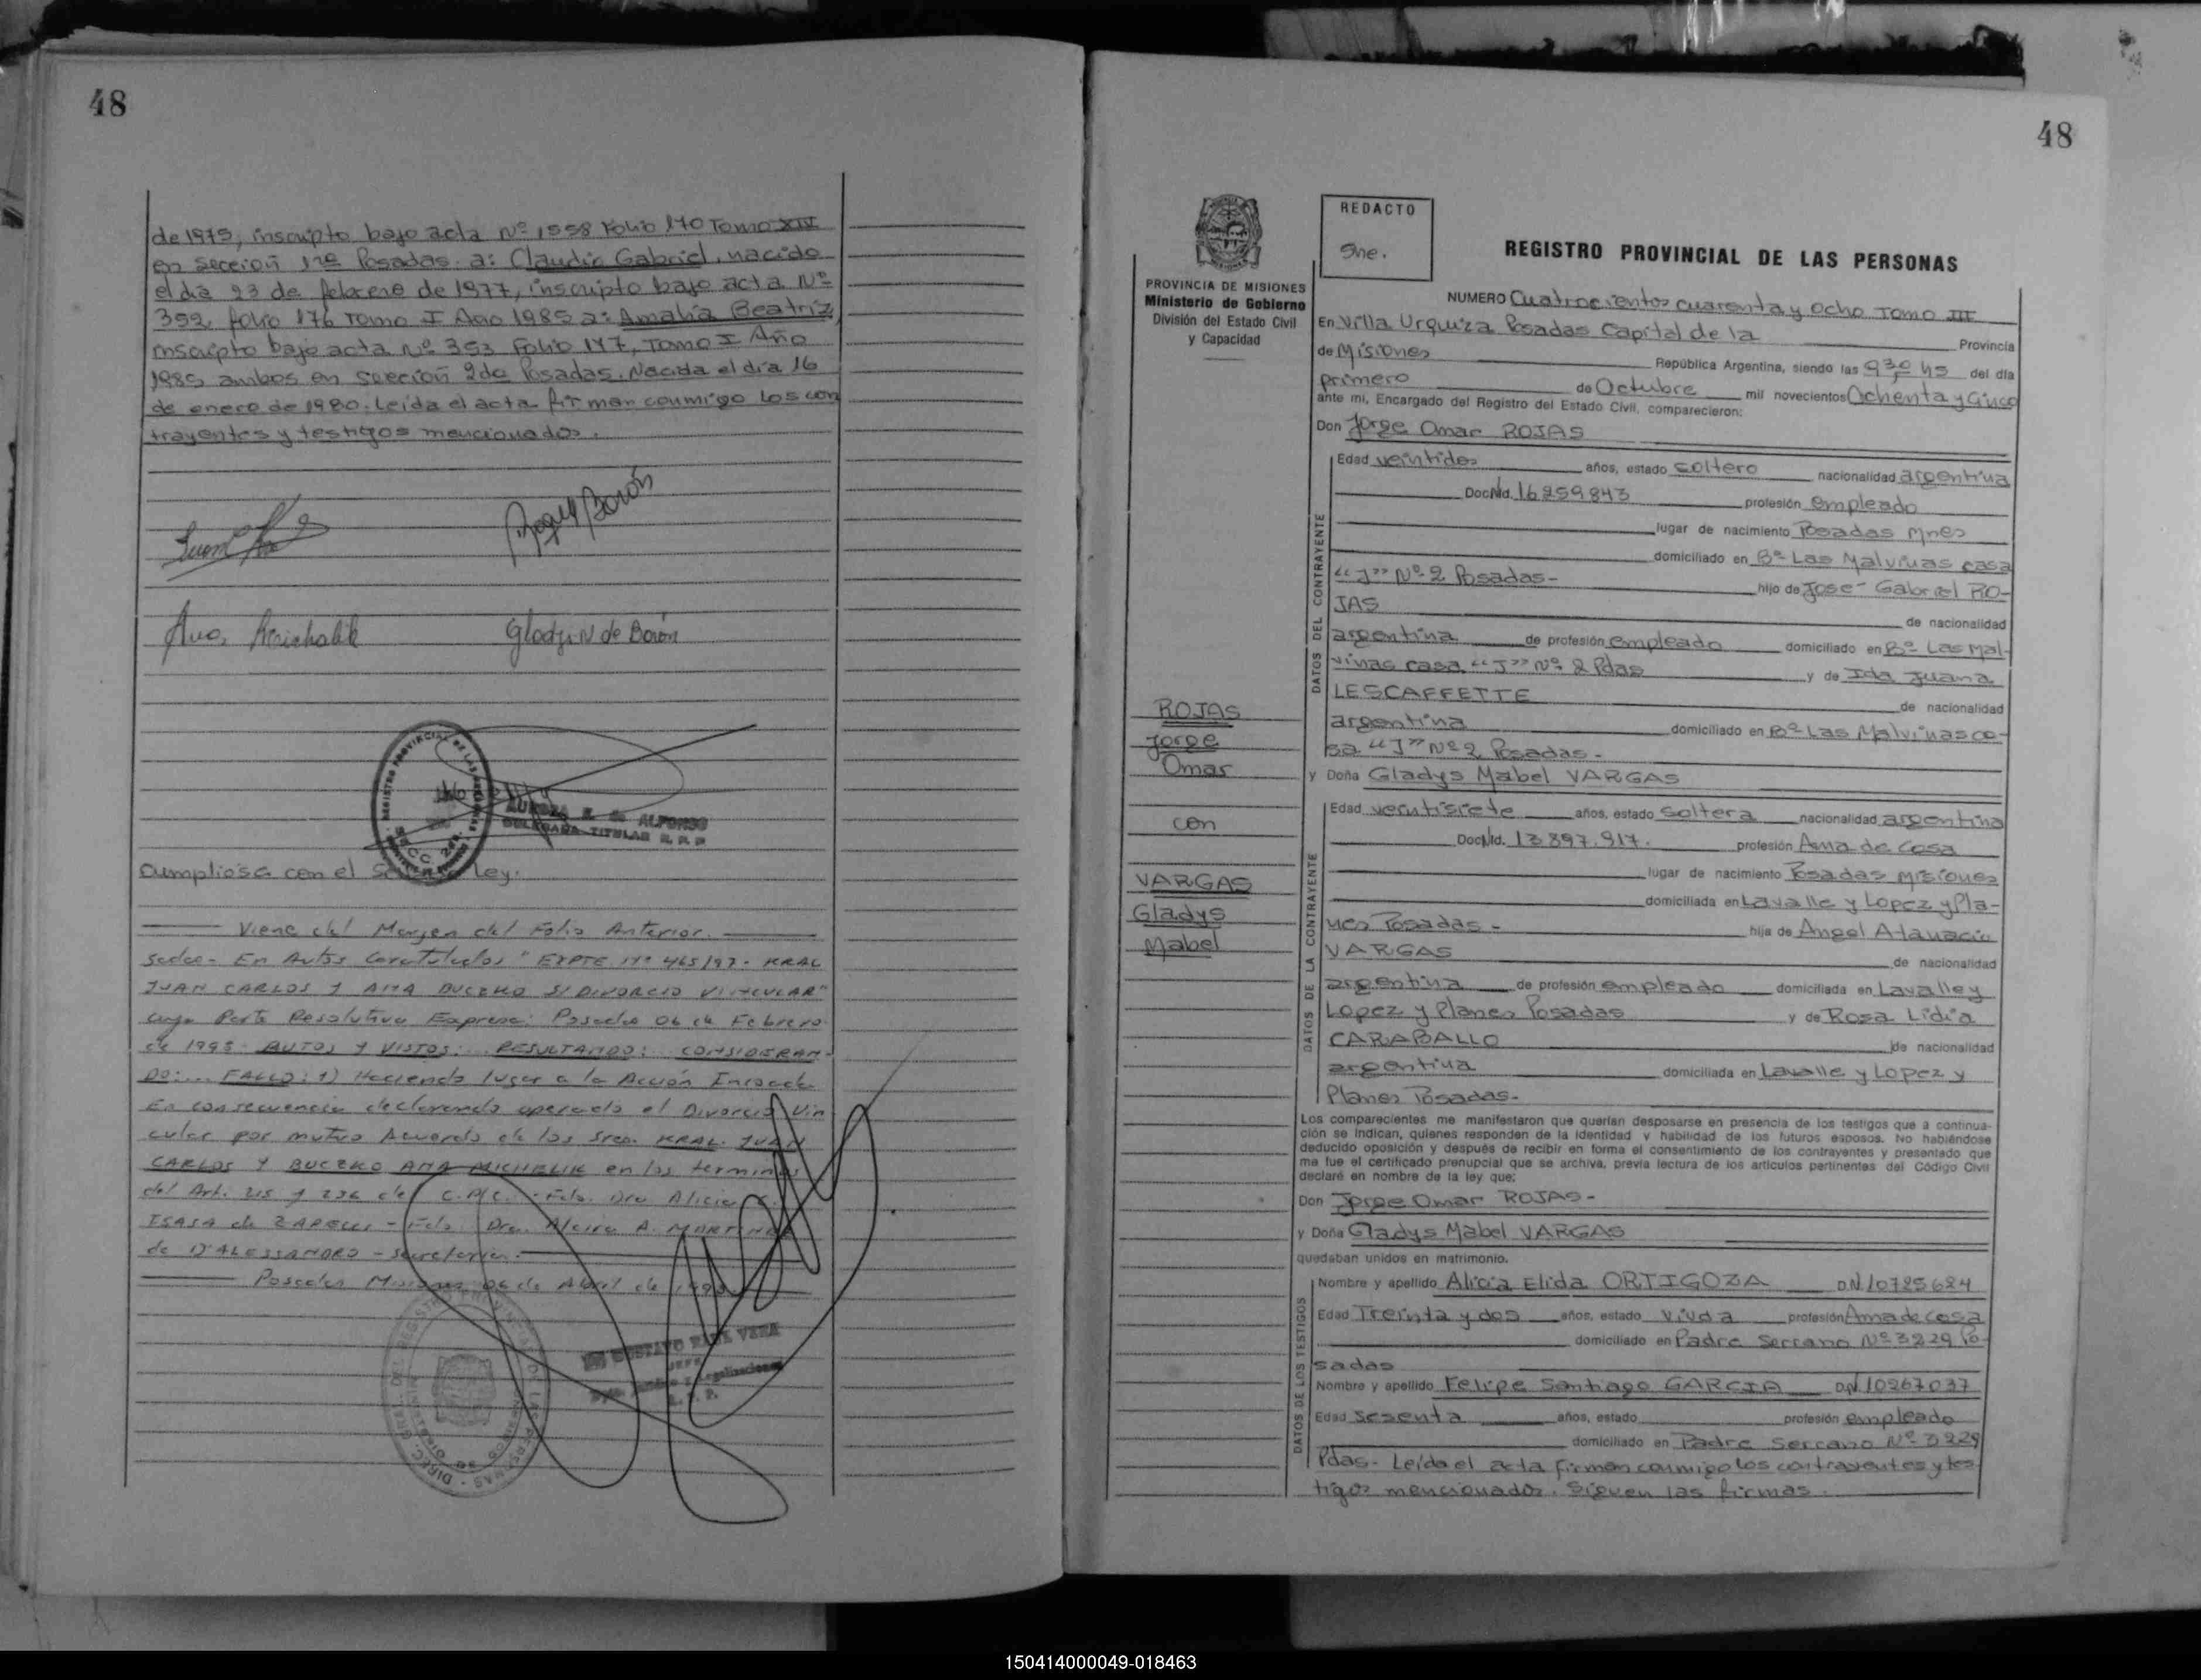 48
de 1975, inscripto bajo acta Nº 1558 Folio 170 Tomo XIV
en Sección 1ra Posadas. a: Claudio Gabriel, nacido
el día 23 de febrero de 1977, inscripto bajo acta Nº
352, folio 176 Tomo I Año 1985 a: Amalia Beatriz,
inscripto bajo acta Nº 353 Folio 177, Tomo I Año
1985 ambos en Sección 2da Posadas. Nacida el día 16
de enero de 1980. Leída el acta firman conmigo los con
trayentes y testigos mencionados.
Gladys N de Borón
REGISTRO PROVINCIAL DE LAS
AURORA E. de ALFONSO
DELEGADA TITULAR R. P. P
SECC 2da.
Cumpliose con el Ley.
Viene del Margen del Folio Anterior.
En Autos Caratulados "EXPTE Nº 465/97- KRAL
JUAN CARLOS Y ANA BUCZKO S/ DIVORCIO VINCULAR"
cuya Parte Resolutiva Expresa: Posadas 06 de Febrero
de 1998 AUTOS Y VISTOS: RESULTANDO: CONSIDERAN-
DO:... FALLO: 1) Haciendo lugar a la Acción Iniciada
En consecuencia declarando operado el Divorcio Vin
cular por mutuo Acuerdo de los Sres. KRAL JUAN
CARLOS Y BUCZKO ANA MICHELIK en los terminos
del Art. 215 y 236 del C. Fdo. Dra Alicia
ISASA de - Fdo. Dra. A. MARTINEZ
de D'ALESSANDRO - Secretaria.
Posadas Misiones 06 de Abril de 1998
GUSTAVO VERA
JEFE
Legalizaciones
48
PROVINCIA DE MISIONES
Ministerio de Gobierno
División del Estado Civil
y Capacidad
REDACTO
Sne.
REGISTRO PROVINCIAL DE LAS PERSONAS
NUMERO Cuatrocientos cuarenta y ocho Tomo III
En Villa Urquiza Posadas Capital de la Provincia
de Misiones República Argentina, siendo las 9 30 hs del día
primero de Octubre mil novecientos Ochenta y Cinco
ante mi, Encargado del Registro del Estado Civil, comparecieron:
Don Jorge Omar ROJAS
DATOS DEL CONTRAYENTE
Edad veintidos años, estado soltero nacionalidad argentina
Doc Nid. 16259843 profesión empleado
lugar de nacimiento Posadas Mnes
domiciliado en Bº Las Malvinas casa
"J" Nº 2 Posadas- hijo de José Gabriel RO-
JAS de nacionalidad
argentina de profesión empleado domiciliado en Bº Las Mal-
vinas casa "J" Nº 2 Pdas y de Ida Juana
LESCAFFETTE de nacionalidad
argentina domiciliado en Bº Las Malvinas ca-
sa "J" Nº 2 Posadas-
y Doña Gladys Mabel VARGAS
ROJAS
Jorge
Omar
con
VARGAS
Gladys
Mabel
DATOS DE LA CONTRAYENTE
Edad veintisiete años, estado soltera nacionalidad argentina
Doc Nid. 13.897.917. profesión Ama de casa
lugar de nacimiento Posadas Misiones
domiciliada en Lavalle y Lopez y Pla-
nes Posadas- hija de Angel Atanacio
VARGAS de nacionalidad
argentina de profesión empleado domiciliada en Lavalle y
Lopez y Planes Posadas y de Rosa Lidia
CARABALLO de nacionalidad
argentina domiciliada en Lavalle y Lopez y
Planes Posadas-
Los comparecientes me manifestaron que querían desposarse en presencia de los testigos que a continua-
ción se indican, quienes responden de la identidad y habilidad de los futuros esposos. No habiéndose
deducido oposición y después de recibir en forma el consentimiento de los contrayentes y presentado que
me fue el certificado prenupcial que se archiva, previa lectura de los artículos pertinentes del Código Civil
declaré en nombre de la ley que:
Don Jorge Omar ROJAS-
y Doña Gladys Mabel VARGAS
quedaban unidos en matrimonio.
DATOS DE LOS TESTIGOS
Nombre y apellido Alicia Elida ORTIGOZA DNI 10725624
Edad Treinta y dos años, estado viuda profesión Ama de casa
domiciliado en Padre Serrano Nº 3229 Po-
sadas
Nombre y apellido Felipe Santiago GARCIA DNI 10267037
Edad Sesenta años, estado profesión empleado
domiciliado en Padre Serrano Nº 3229
Pdas- Leída el acta firman conmigo los contrayentes y tes
tigos mencionados. Siguen las firmas.
150414000049-018463